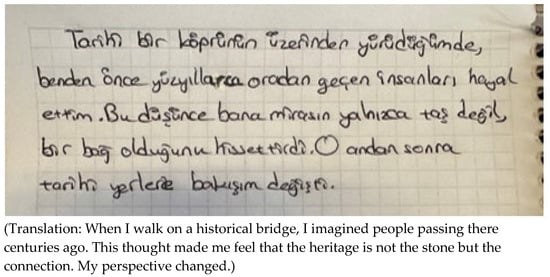 Tarihi bir köprünün üzerinden yürüdüğümde,
benden önce yüzyıllarca oradan geçen insanları hayal
ettim. Bu düşünce bana mirasın yalnızca taş değil,
bir bağ olduğunu hissettirdi. O andan sonra
tarihi yerlere bakışım değişti.
(Translation: When I walk on a historical bridge, I imagined people passing there
centuries ago. This thought made me feel that the heritage is not the stone but the
connection. My perspective changed.)